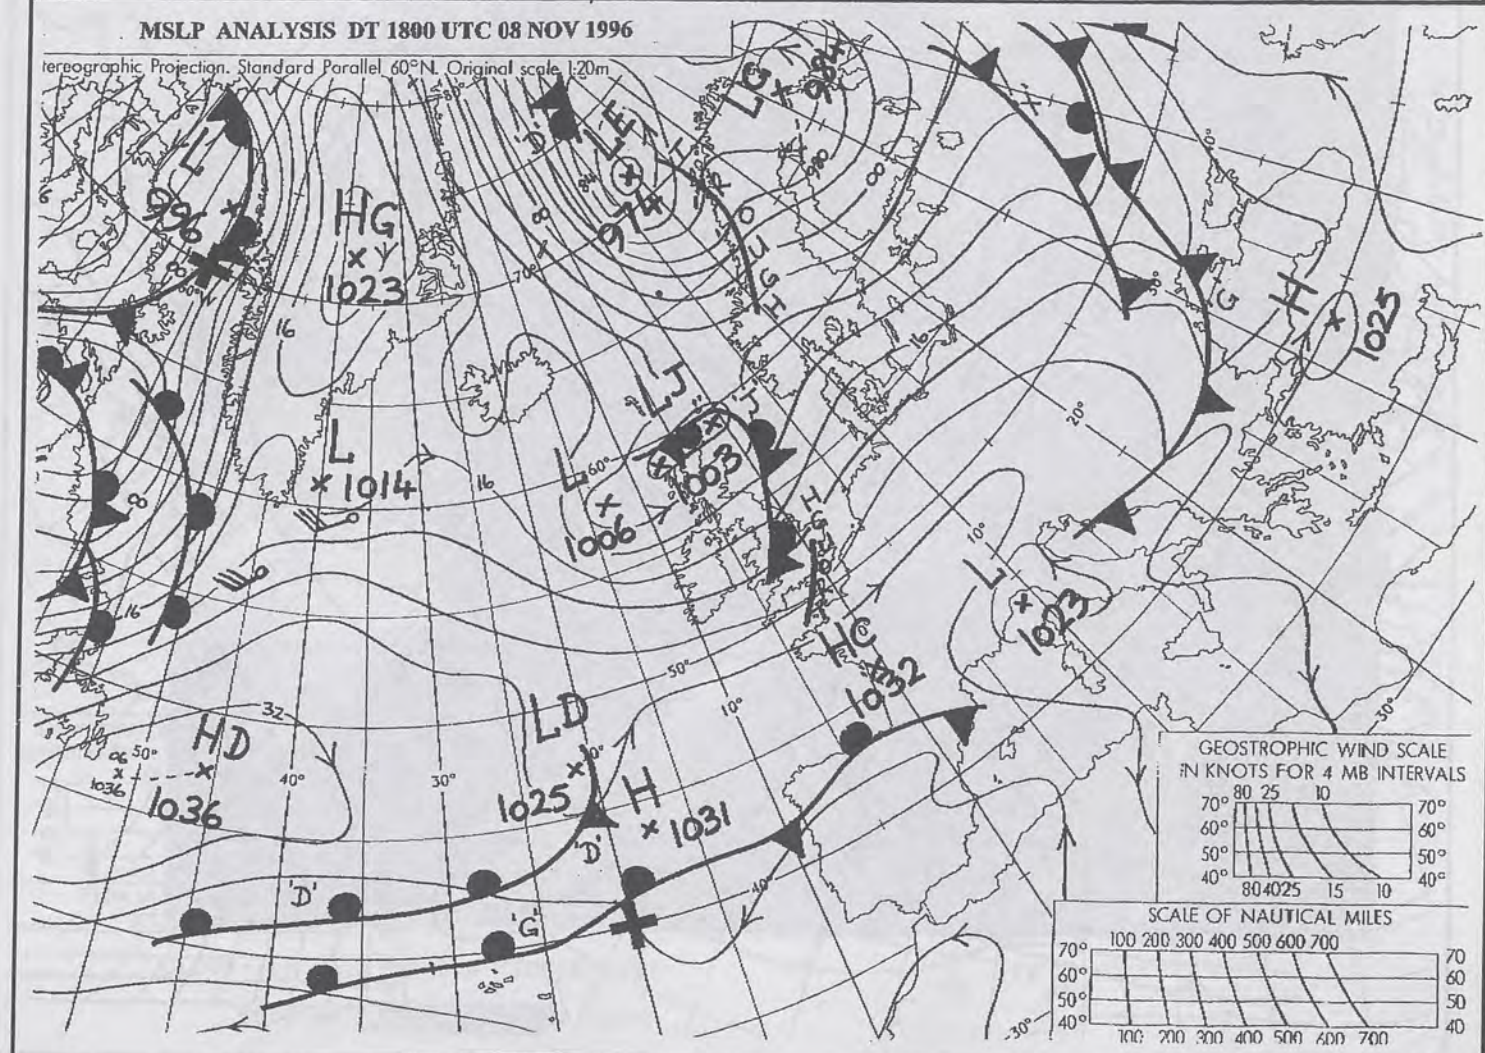 MSLP ANALYSIS DT 1800 UTC 08 NOV 1996
tereographic Projection. Standard Parallel 60°N. Original scale 1:20m
L G
984
'D'
L E
974
980
T R O U G H
L
996
HG
1023
16
70°
16
8
H
1025
G
30°
20°
L
1014
8
16
16
L
60°
1006
L
1003
10°
L
1023
50°
HC
1032
10°
32
HD
96
50°
1036
1036
40°
30°
LD
1025
H
1031
'D'
'D'
'G'
40°
30°
-30°
GEOSTROPHIC WIND SCALE
IN KNOTS FOR 4 MB INTERVALS
80 25 10
70° 70°
60° 60°
50° 50°
40° 40°
80 40 25 15 10
SCALE OF NAUTICAL MILES
100 200 300 400 500 600 700
70° 70
60° 60
50° 50
40° 40
100 200 300 400 500 600 700